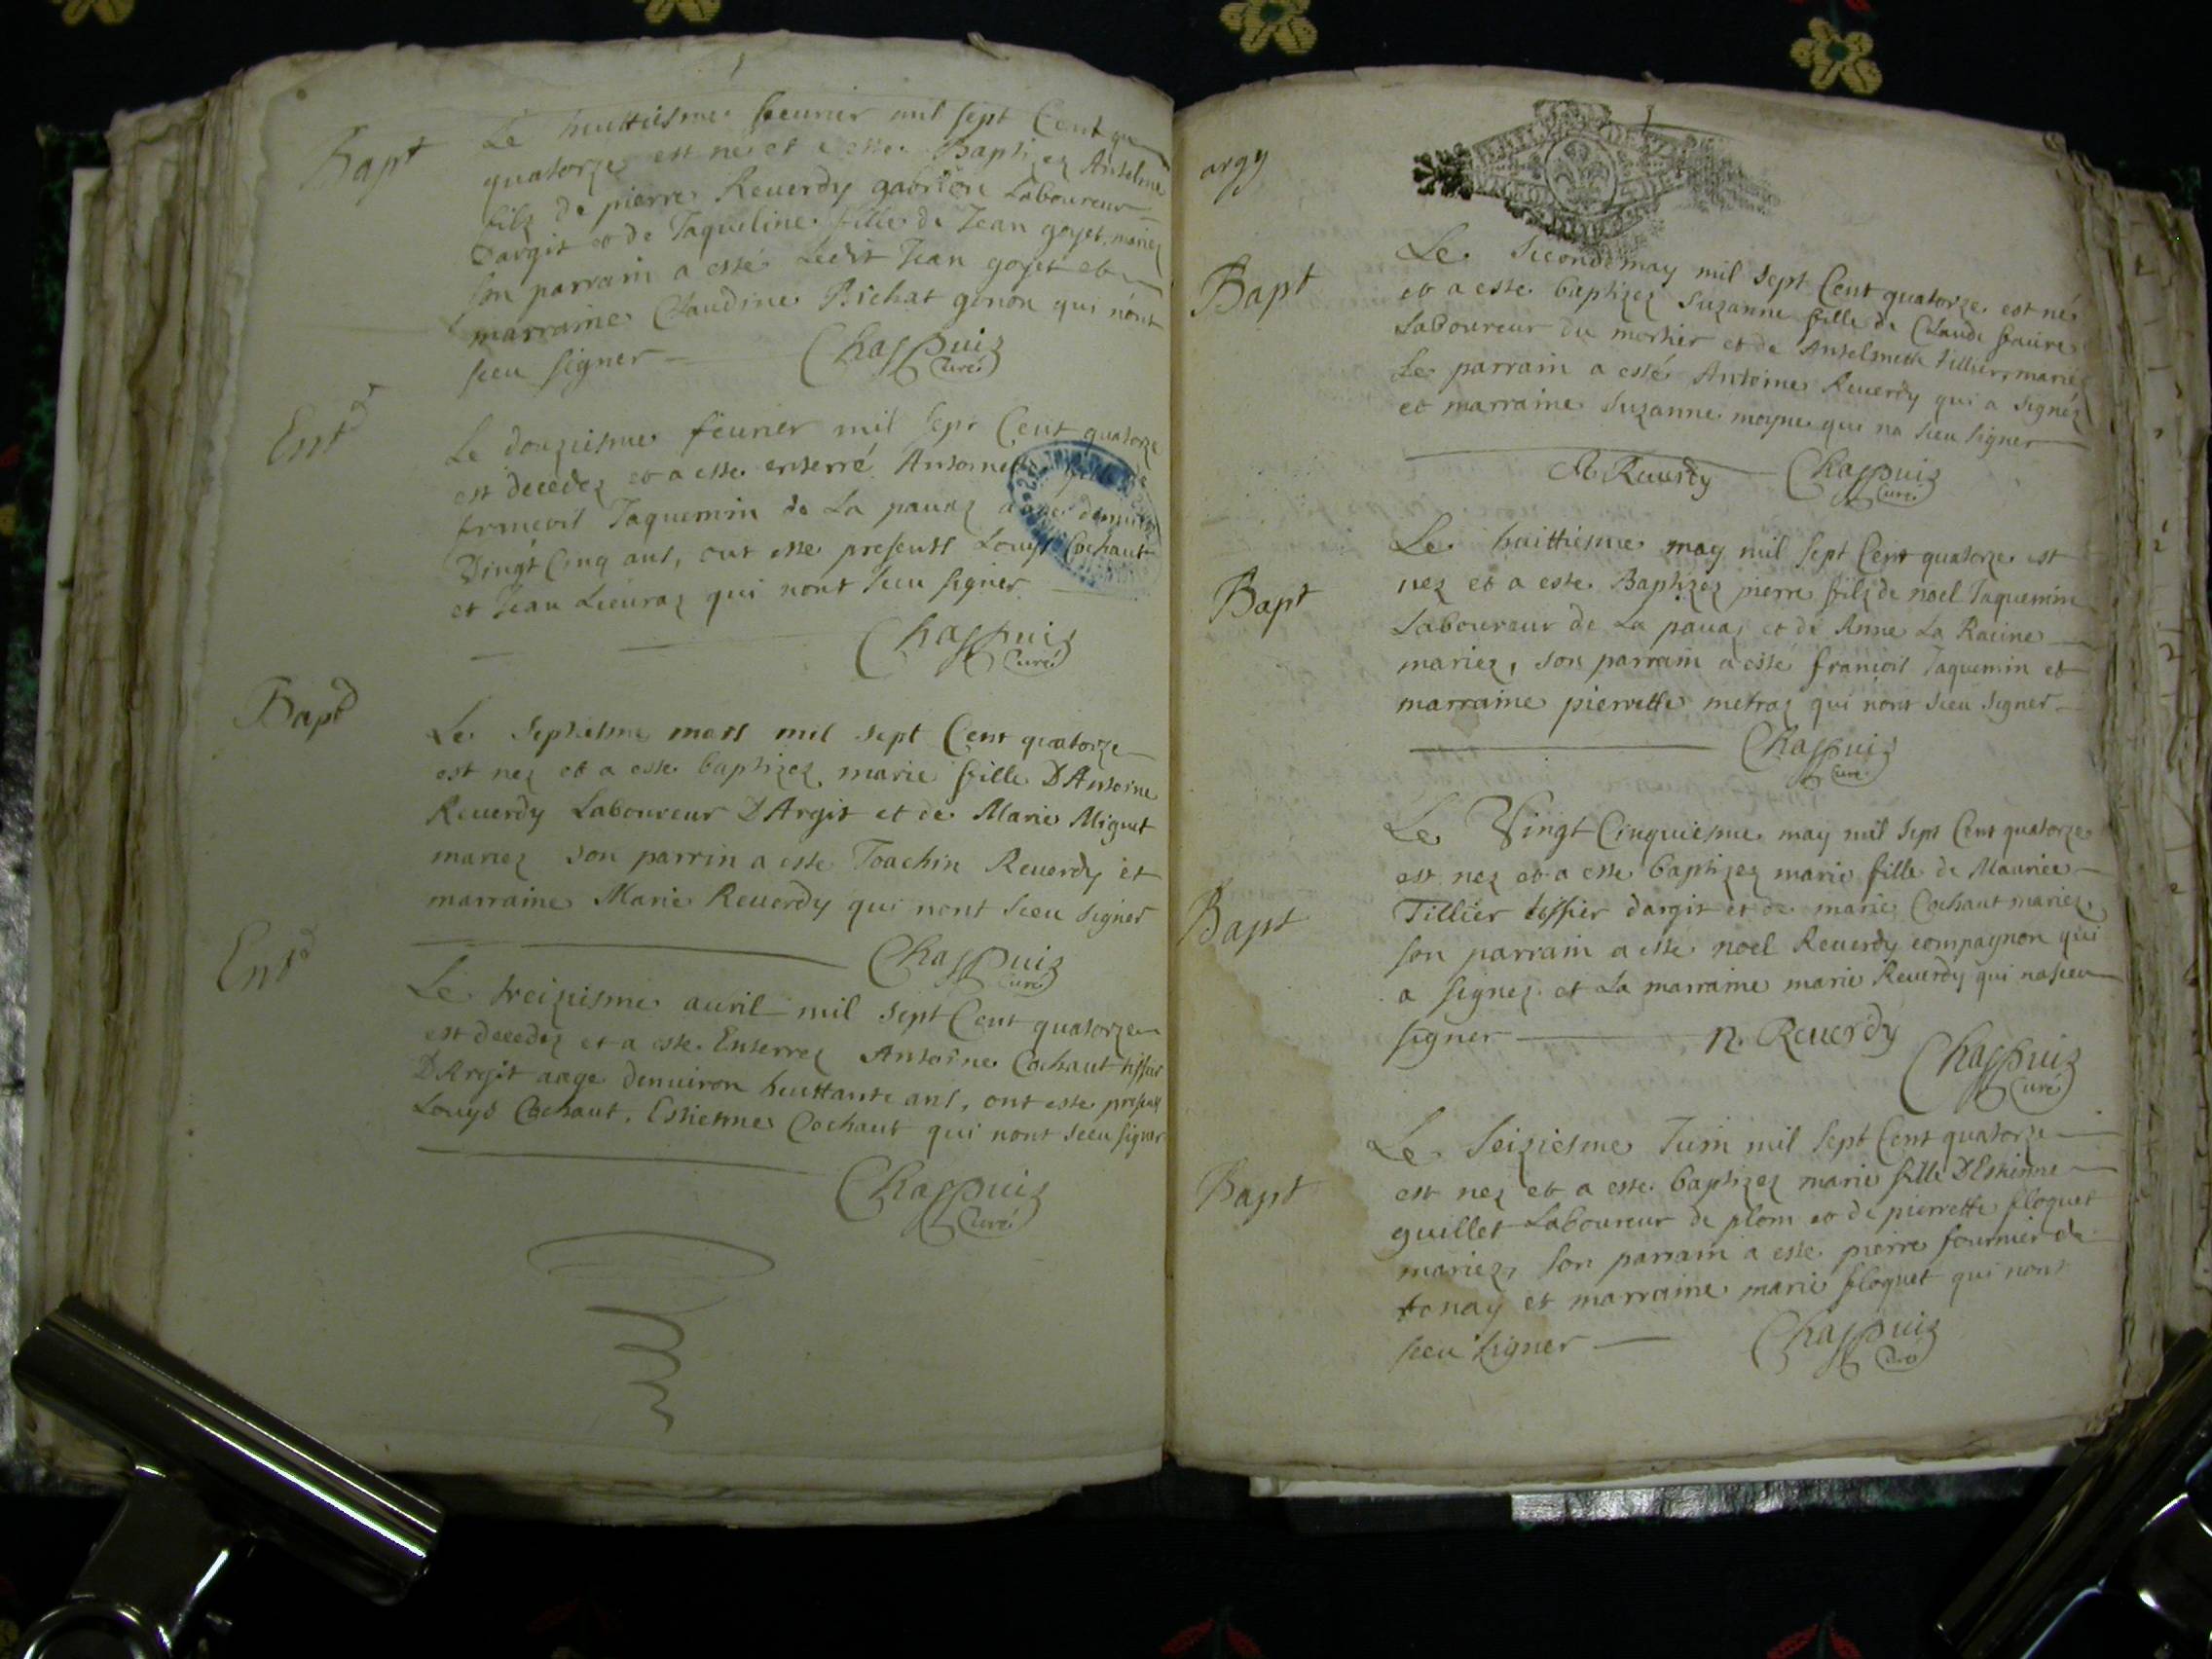 Bapt
Le huittiesme feurier mil sept Cent
quatorze est né et a esté Baptizez Antelme
filz de pierre Reuerdy gabrion Laboureur
Dargit et de Jaqueline fille de Jean goyet mariez
son parrain a esté Ledit Jean goyet et
marraine Claudine Bichat genon qui nont
sceu signer Chappuiz
Curé
Ent
Le douziesme feurier mil sept Cent quatorze
est decedez et a esté enterré Antoine
francois Jaquemin de La pauaz aagé denuiron
Vingt Cinq ans, ont esté presents Louys Cochaut
et Jean Lieuraz qui nont sceu signer
Chappuiz
Curé
Bapt
Le septiesme mars mil sept Cent quatorze
est nez et a esté baptizez marie fille DAntoine
Reuerdy Laboureur DArgit et de Marie Mignet
mariez son parrin a esté Joachin Reuerdy et
marraine Marie Reuerdy qui nont sceu signer
Chappuiz
Curé
Ent
Le treiziesme auril mil sept Cent quatorze
est decedez et a esté Enterrez Antoine Cochaut tissier
DArgit aage denuiron huittante ans, ont esté presents
Louys Cochaut, Estienne Cochaut qui nont sceu signer
Chappuiz
Curé
argy
Bapt
Le second may mil sept Cent quatorze est né
et a esté baptizez Suzanne fille de Claude faure
Laboureur du mortier et de Antelmette tillier, mariez
Le parrain a esté Antoine Reuerdy qui a signéz
et marraine Suzanne moyne qui na sceu signer
A Reuerdy Chappuiz
Curé
Bapt
Le huittiesme may mil sept Cent quatorze est
nez et a esté Baptizez pierre filz de noel Jaquemin
Laboureur de La pauaz et de Anne La Racine
mariez, son parrain a esté francois Jaquemin et
marraine pierrette metraz qui nont sceu signer
Chappuiz
Curé
Bapt
Le Vingt Cinquiesme may mil sept Cent quatorze
est nez et a esté baptizez marie fille de Maurice
Tillier tissier dargit et de marie Cochaut mariez
son parrain a esté noel Reuerdy compagnon qui
a signez et La marraine marie Reuerdy qui na sceu
signer n. Reuerdy Chappuiz
Curé
Bapt
Le seiziesme Juin mil sept Cent quatorze
est nez et a esté baptizez marie fille DEstienne
guillet Laboureur de plom et de pierrette floquet
mariez, son parrain a esté pierre fournier de
tenay et marraine marie floquet qui nont
sceu signer Chappuiz
Curé